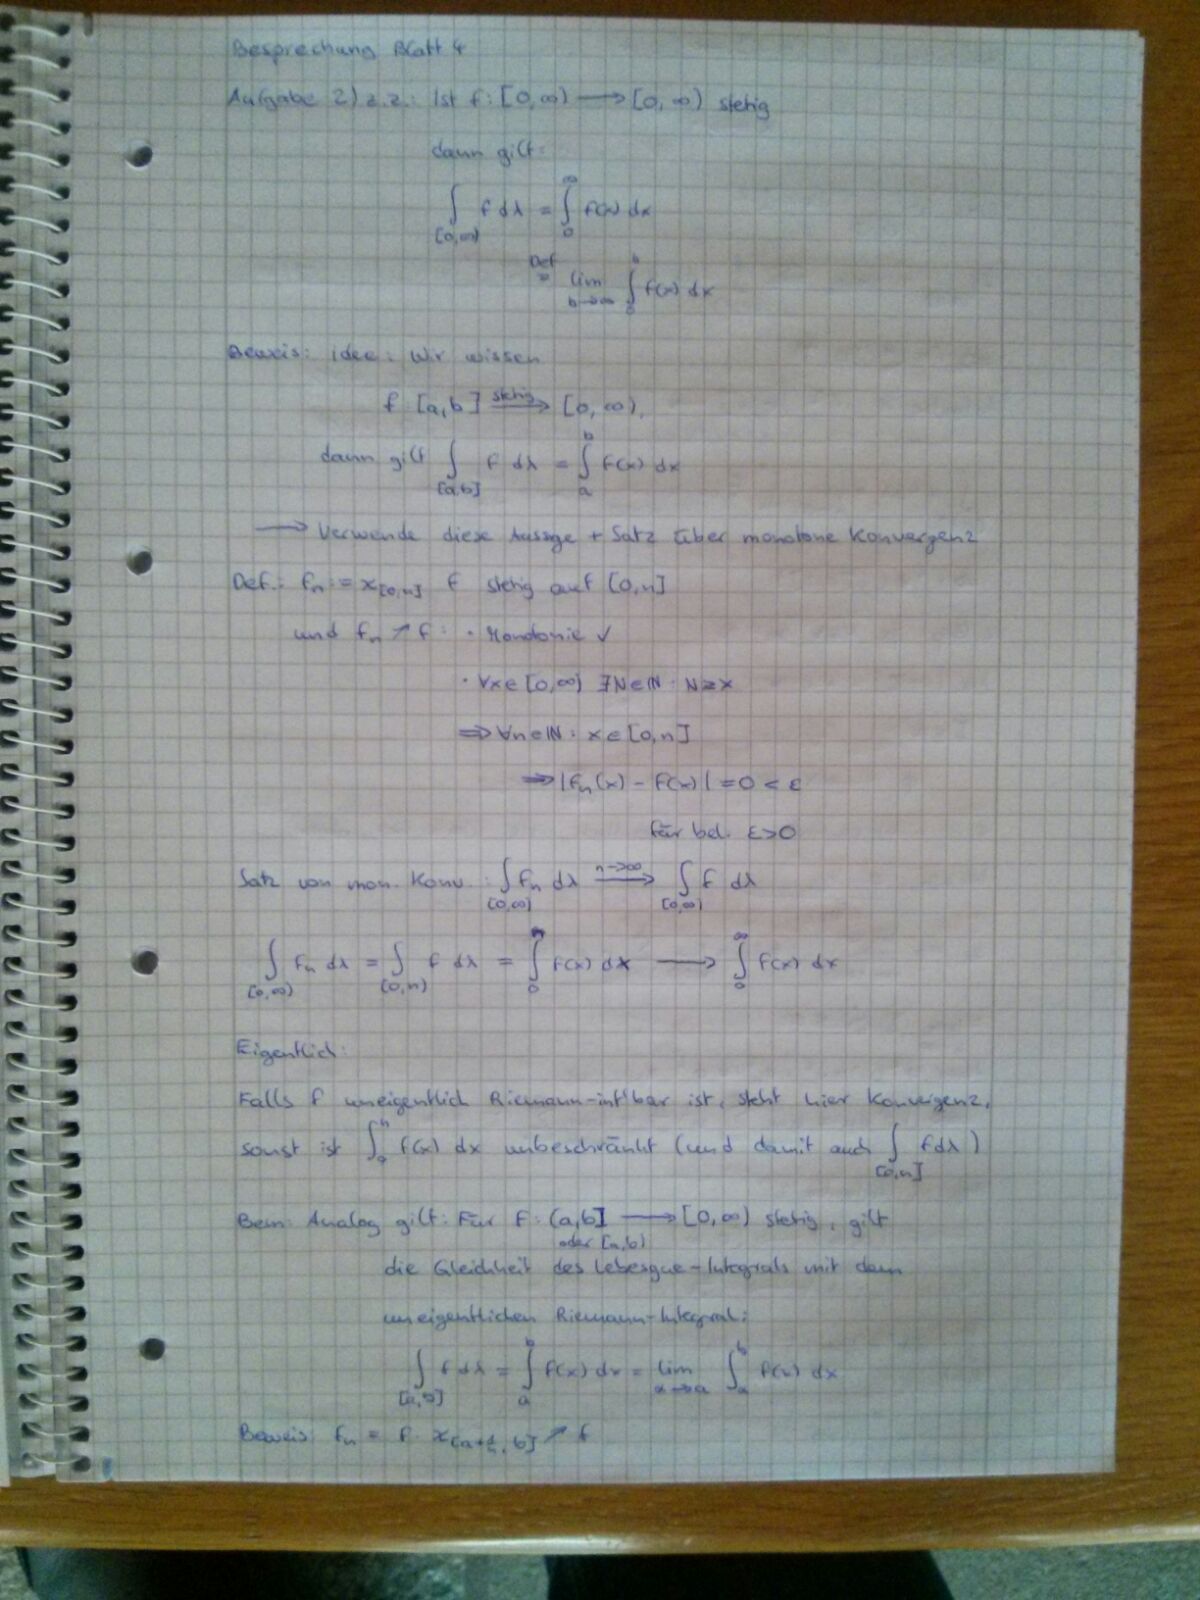 Besprechung Blatt 4
Aufgabe 2) z.z.: Ist f: [0,∞) ⟶ [0,∞) stetig
dann gilt:
∫_{[0,∞)} f dλ = ∫_0^∞ f(x) dx
Def = lim_{b→∞} ∫_0^b f(x) dx
Beweis: Idee: Wir wissen
f: [a,b] stetig ⟶ [0,∞),
dann gilt ∫_{[a,b]} f dλ = ∫_a^b f(x) dx
⟶ Verwende diese Aussge + Satz über monotone Konvergenz
Def.: f_n := χ_{[0,n]} f stetig auf [0,n]
und f_n ↗ f: · Monotonie ✓
· ∀x∈[0,∞) ∃N∈ℕ: N≥x
⇒ ∀n∈ℕ: x∈[0,n]
⇒ |f_n(x) - f(x)| = 0 < ε
für bel. ε>0
Satz von mon. Konv.: ∫_{[0,∞)} f_n dλ n→∞ ⟶ ∫_{[0,∞)} f dλ
∫_{[0,∞)} f_n dλ = ∫_{[0,n)} f dλ = ∫_0^n f(x) dx ⟶ ∫_0^∞ f(x) dx
Eigentlich:
Falls f uneigentlich Riemann-int'bar ist, steht hier Konvergenz,
sonst ist ∫_0^n f(x) dx unbeschränkt (und damit auch ∫_{[0,n]} f dλ)
Bem: Analog gilt: Für f: (a,b] ⟶ [0,∞) stetig, gilt
oder [a,b)
die Gleichheit des Lebesgue-Integrals mit dem
uneigentlichen Riemann-Integral:
∫_{[a,b]} f dλ = ∫_a^b f(x) dx = lim_{α→a} ∫_α^b f(x) dx
Beweis: f_n = f · χ_{[a+1/n, b]} ↗ f